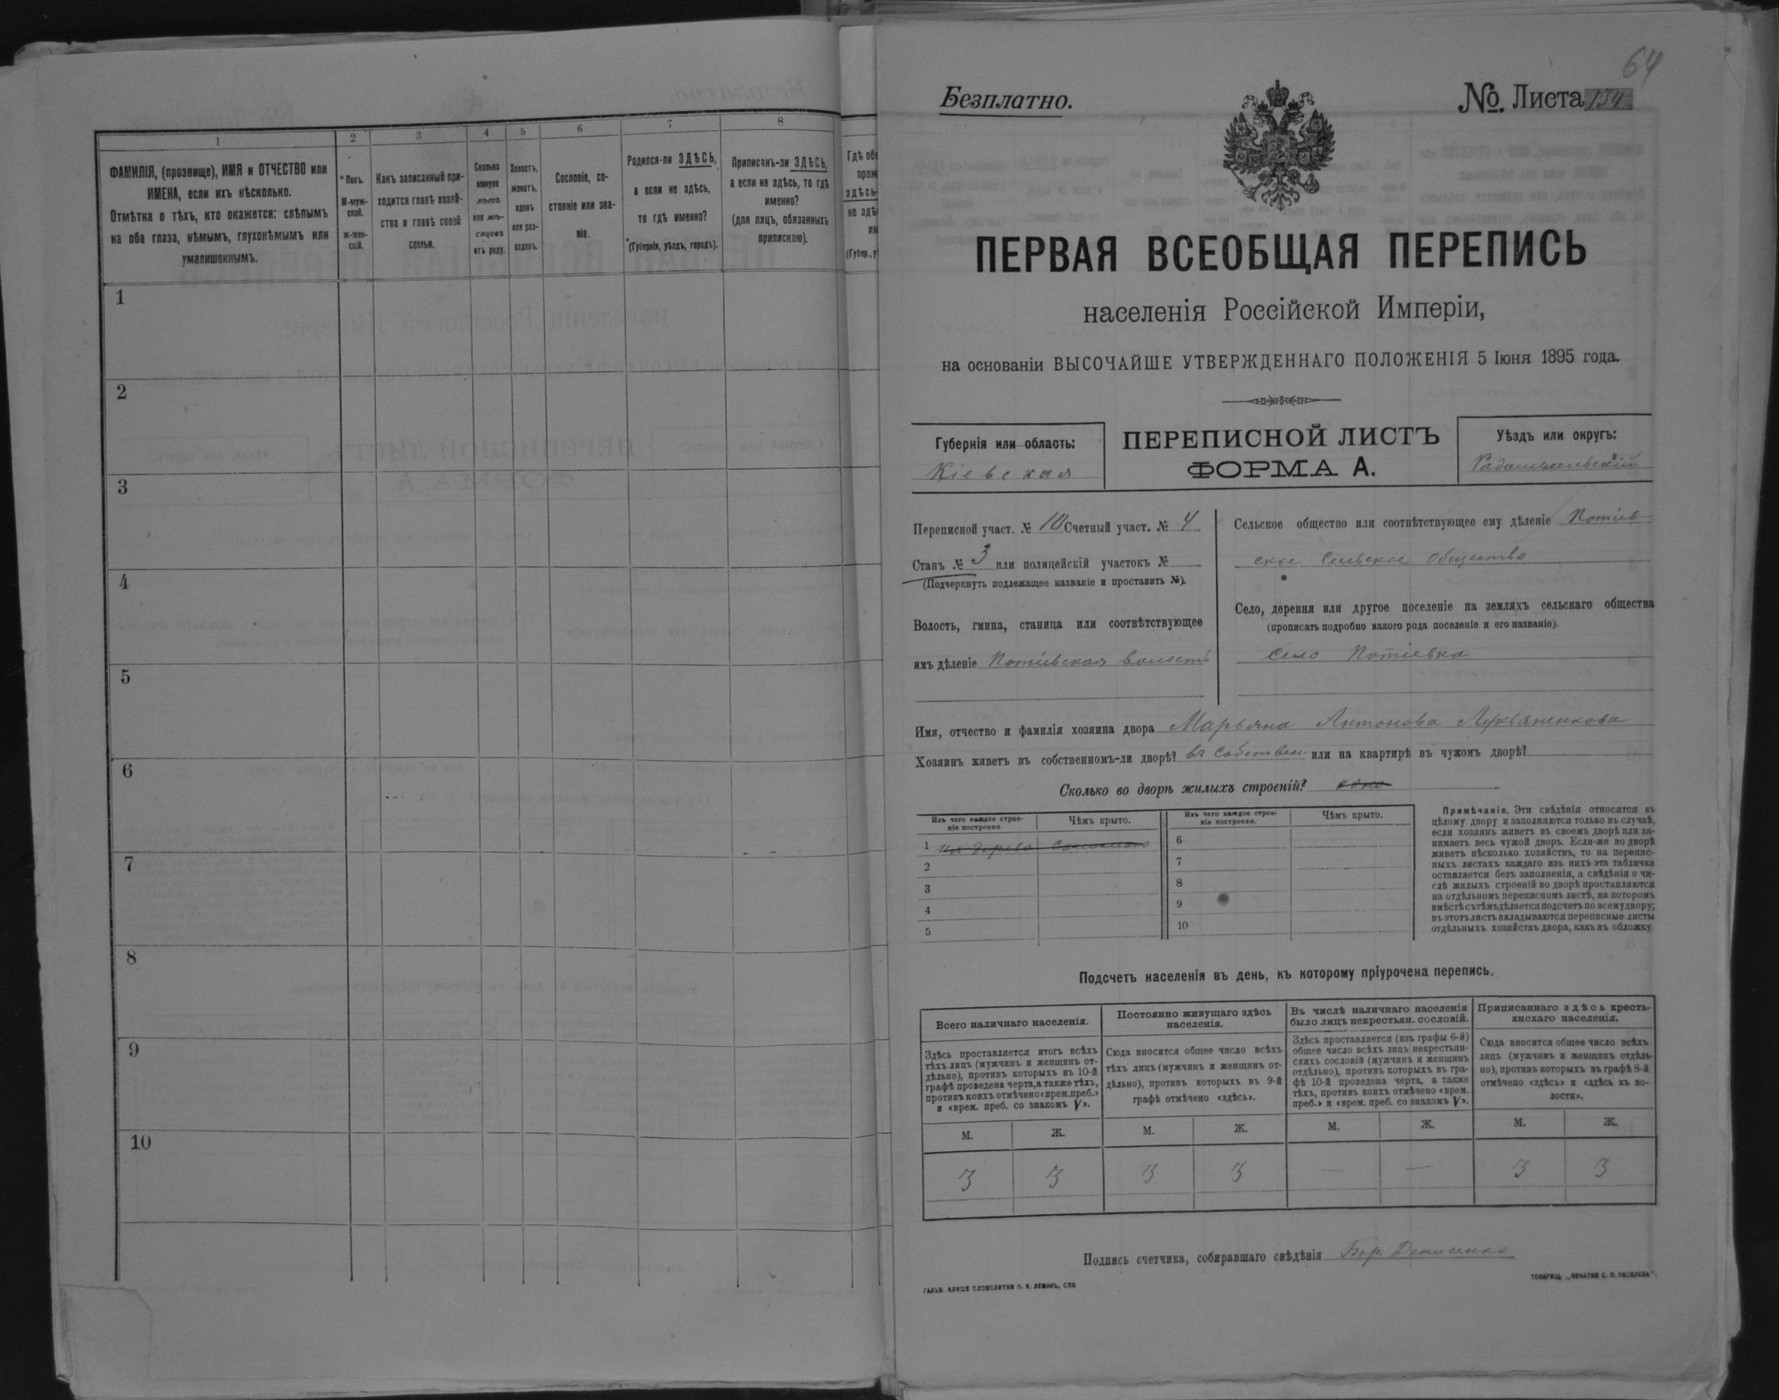 1
ФАМИЛІЯ, (прозвище), ИМЯ и ОТЧЕСТВО или
ИМЕНА, если ихъ нѣсколько.
Отмѣтка о тѣхъ, кто окажется: слѣпымъ
на оба глаза, нѣмымъ, глухонѣмымъ или
умалишеннымъ.
2
Полъ.
М-муж-
ской.
ж-жен-
скій.
3
Какъ записанный при-
ходится главѣ хозяй-
ства и главѣ своей
семьи.
4
Сколько
минуло
лѣтъ
или мѣ-
сяцевъ
отъ роду.
5
Холостъ,
женатъ,
вдовъ
или раз-
веденъ.
6
Сословіе, со-
стояніе или зва-
ніе.
7
Родился-ли ЗДѢСЬ,
а если не здѣсь,
то гдѣ именно?
(Губернія, уѣздъ, городъ).
8
Приписанъ-ли ЗДѢСЬ,
а если не здѣсь, то гдѣ
именно?
(для лицъ, обязанныхъ
припискою).
Гдѣ об
прож
здѣсь
не здѣ
им
(Губер., у
1
2
3
4
5
6
7
8
9
10
64
Безплатно.
№ Листа 134
ПЕРВАЯ ВСЕОБЩАЯ ПЕРЕПИСЬ
населенія Россійской Имперіи,
на основаніи ВЫСОЧАЙШЕ УТВЕРЖДЕННАГО ПОЛОЖЕНІЯ 5 Іюня 1895 года.
Губернія или область:
Кіевская
ПЕРЕПИСНОЙ ЛИСТЪ
ФОРМА А.
Уѣздъ или округъ:
Радомысльскій
Переписной участ. № 10 Счетный участ. № 4
Станъ № 3 или полицейскій участокъ №
(Подчеркнуть подлежащее названіе и проставить №).
Волость, гмина, станица или соотвѣтствующее
имъ дѣленіе Потіевская волость
Сельское общество или соотвѣтствующее ему дѣленіе Потіев-
ское Сельское общество
Село, деревня или другое поселеніе на земляхъ сельскаго общества
(прописать подробно какого рода поселеніе и его названіе).
Село Потіевка
Имя, отчество и фамилія хозяина двора Марьяна Антонова Лукьяненкова
Хозяинъ живетъ въ собственномъ-ли дворѣ? въ собствен. или на квартирѣ въ чужомъ дворѣ?
Сколько во дворѣ жилыхъ строеній? одно
Изъ чего каждое строе-
ніе построено.
Чѣмъ крыто.
1 изъ дерева соломою
2
3
4
5
Изъ чего каждое строе-
ніе построено.
Чѣмъ крыто.
6
7
8
9
10
Примѣчаніе. Эти свѣдѣнія относятся къ
цѣлому двору и заполняются только въ случаѣ,
если хозяинъ живетъ въ своемъ дворѣ или за-
нимаетъ весь чужой дворъ. Если-же во дворѣ
живетъ нѣсколько хозяйствъ, то на перепис-
ныхъ листахъ каждаго изъ нихъ эта табличка
оставляется безъ заполненія, а свѣдѣнія о чи-
слѣ жилыхъ строеній во дворѣ проставляются
на отдѣльномъ переписномъ листѣ, на которомъ
вмѣстѣ съ тѣмъ дѣлается подсчетъ по всему двору;
въ этотъ листъ вкладываются переписные листы
отдѣльныхъ хозяйствъ двора, какъ въ обложку.
Подсчетъ населенія въ день, къ которому пріурочена перепись.
Всего наличнаго населенія.
Здѣсь проставляется итогъ всѣхъ
тѣхъ лицъ (мужчинъ и женщинъ от-
дѣльно), противъ которыхъ въ 10-й
графѣ проведена черта, а также тѣхъ,
противъ коихъ отмѣчено «врем. преб.»
и «врем. преб. со знакомъ V».
Постоянно живущаго здѣсь
населенія.
Сюда вносится общее число всѣхъ
тѣхъ лицъ (мужчинъ и женщинъ от-
дѣльно), противъ которыхъ въ 9-й
графѣ отмѣчено «здѣсь».
Въ числѣ наличнаго населенія
было лицъ некрестьян. сословій.
Здѣсь проставляется (изъ графы 6-й)
общее число всѣхъ лицъ некрестьян-
скихъ сословій (мужчинъ и женщинъ
отдѣльно), противъ которыхъ въ гра-
фѣ 10-й проведена черта, а также
тѣхъ, противъ коихъ отмѣчено «врем.
преб.» и «врем. преб. со знакомъ V».
Приписаннаго здѣсь кресть-
янскаго населенія.
Сюда вносится общее число всѣхъ
лицъ (мужчинъ и женщинъ отдѣль-
но), противъ которыхъ въ графѣ 8-й
отмѣчено «здѣсь» и «здѣсь въ во-
лости».
М. Ж. М. Ж. М. Ж. М. Ж.
3 3 3 3 — — 3 3
Подпись счетчика, собиравшаго свѣдѣнія Бор. Денисенко
ГАЛЬВ. КЛИШЕ СЛОВОЛИТНИ О. И. ЛЕМАНЪ, СПБ
ТОВАРИЩ. „ПЕЧАТНЯ С. П. ЯКОВЛЕВА".